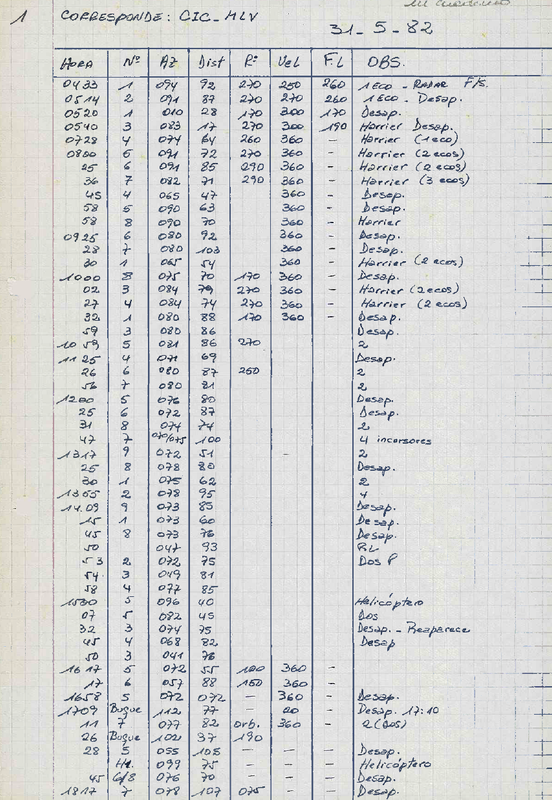 1 CORRESPONDE: CIC_MLV
31_5_82
HORA Nº AZ Dist Rº Vel F.L OBS.
0433 1 094 92 270 250 260 1 ECO - RADAR F/S.
0514 2 091 87 270 270 260 1 ECO - Desap.
0520 1 010 28 170 300 170 Desap.
0540 3 083 17 270 300 190 Harrier Desap.
0728 4 074 64 260 360 - Harrier (1 eco)
0800 5 091 72 270 360 - Harrier (2 ecos)
25 6 091 85 290 360 - Harrier (2 ecos)
36 7 082 71 290 360 - Harrier (3 ecos)
45 4 065 47 360 - Desap.
58 5 090 63 360 - Desap.
58 8 090 70 360 Harrier
0925 6 080 92 360 - Desap.
28 7 080 103 360 - Desap.
30 1 065 54 360 - Harrier (2 ecos)
1000 8 075 70 170 360 - Desap.
02 3 084 79 270 360 - Harrier (2 ecos)
27 4 084 74 270 360 - Harrier (2 ecos)
32 1 080 88 170 360 - Desap.
59 3 080 86 Desap.
1059 5 081 86 270 2
1125 4 071 69 Desap.
26 6 080 87 250 2
56 7 080 81 2
1200 5 076 80 Desap.
25 6 072 87 Desap.
31 8 074 74 2
47 7 070/075 100 4 incersores
1317 9 072 51 - 2
25 8 078 80 Desap.
30 1 075 62 2
1355 2 078 95 4
14.09 9 073 85 Desap.
15 1 073 60 Desap.
45 8 073 76 Desap.
50 047 93 R.L
53 2 072 75 Dos P
54 3 049 81
58 4 077 85
1530 5 096 40 Helicóptero
07 5 082 45 Dos
32 3 074 75 Desap. - Reaparece
45 4 068 82 Desap
50 3 041 76
1617 5 072 55 100 360 -
17 6 057 88 150 360 -
1658 5 072 072 - 360 - Desap.
1709 Buque 112 77 - 20 - Desap. 17:10
11 7 077 82 orb. 360 - 2 (dos)
26 Buque 102 37 190
28 5 055 108 - - - Desap.
H. 099 75 - - - Helicóptero
45 6/8 076 70 - - - Desap.
1817 7 078 107 075 - - Desap.